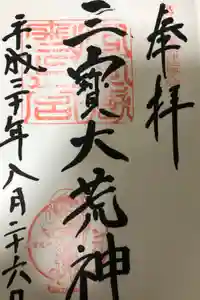 奉拝
三寳大荒神
平成三十年八月二十六日